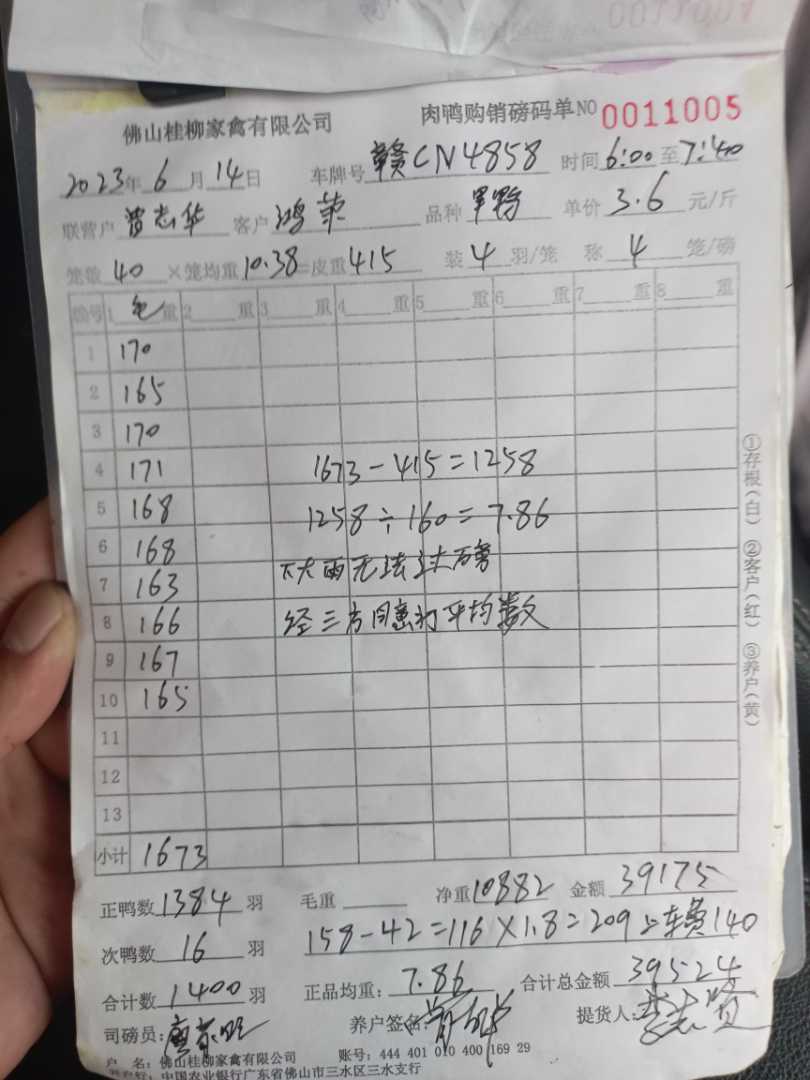 佛山桂柳家禽有限公司 肉鸭购销磅码单 NO 0011005
2023年 6月 14日 车牌号 赣CN4858 时间 6:00 至 7:40
联营户 曾志华 客户 鸿荣 品种 单价 3.6 元/斤
笼数 40 ×笼均重 10.38 =皮重 415 装 4 羽/笼 称 4 笼/磅
编号 1 毛 重 2 重 3 重 4 重 5 重 6 重 7 重 8 重
1 170
2 165
3 170
4 171 1673-415=1258
5 168 1258÷160=7.86
6 168 下大雨无法过磅
7 163
8 166 经三方同意打平均数
9 167
10 165
11
12
13
小计 1673
①存根(白) ②客户(红) ③养户(黄)
正鸭数 1384 羽 毛重 净重 10882 金额 39175
次鸭数 16 羽 158-42=116×1.8=209 车费140
合计数 1400 羽 正品均重: 7.86 合计总金额 39524
司磅员: 养户签名: 提货人:
户 名: 佛山桂柳家禽有限公司 账号: 444 401 010 400 169 29
开户行: 中国农业银行广东省佛山市三水区三水支行